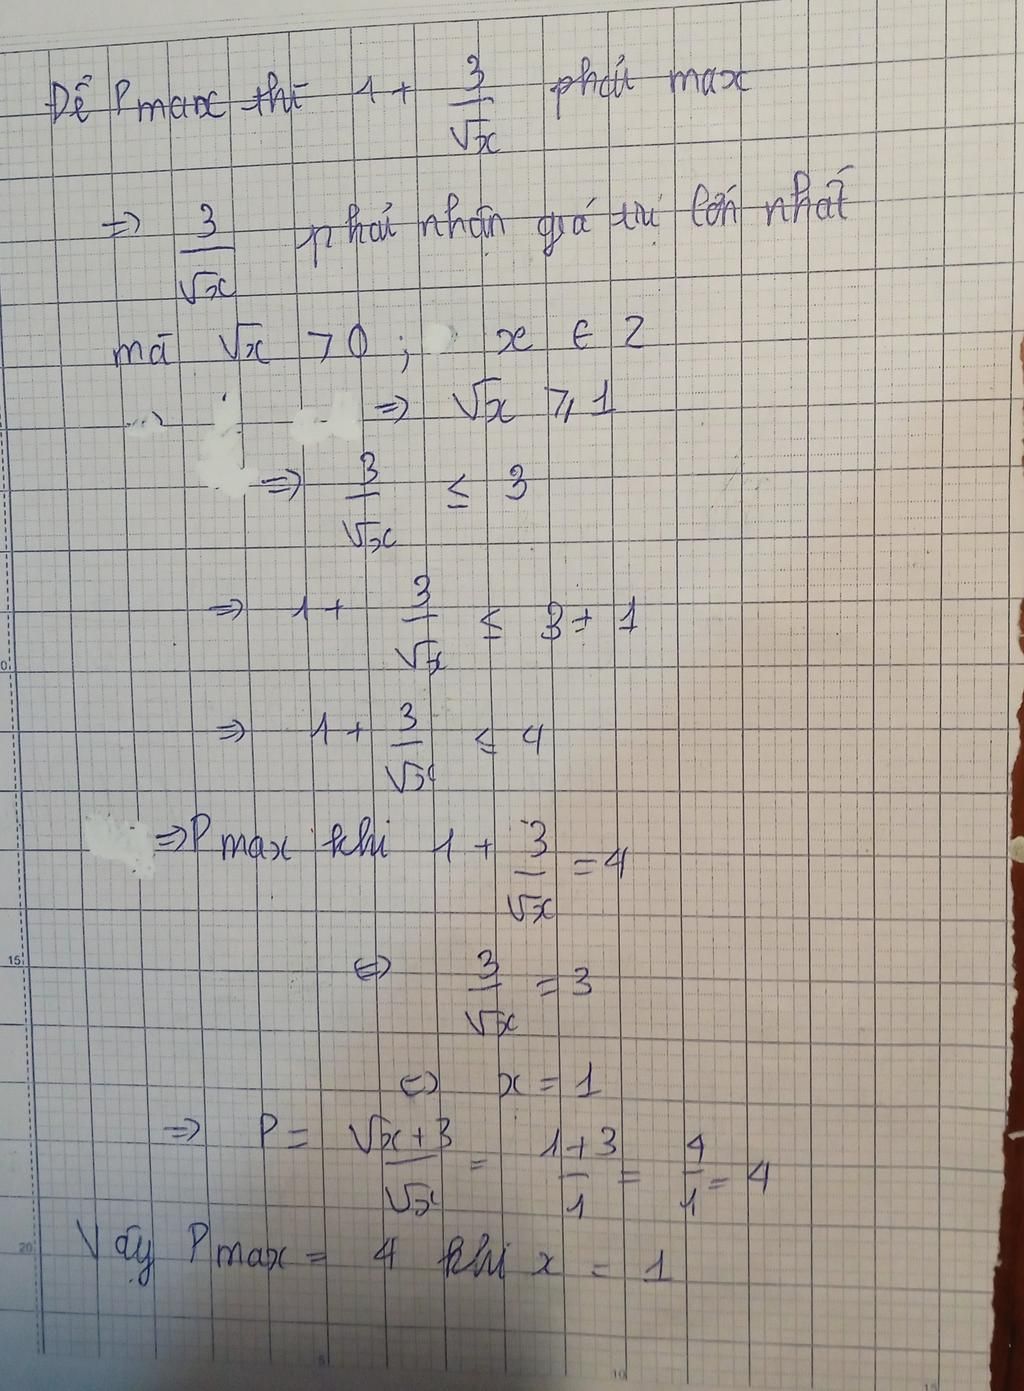 Để Pmax thì 1 + 3/√x phải max
=> 3/√x phải nhận giá trị lớn nhất
mà √x > 0 ; x ∈ Z
=> √x ≥ 1
=> 3/√x ≤ 3
=> 1 + 3/√x ≤ 3 + 1
=> 1 + 3/√x ≤ 4
=> P max khi 1 + 3/√x = 4
<=> 3/√x = 3
<=> x = 1
=> P = (√x + 3)/√x = (1 + 3)/1 = 4/1 = 4
Vậy Pmax = 4 khi x = 1